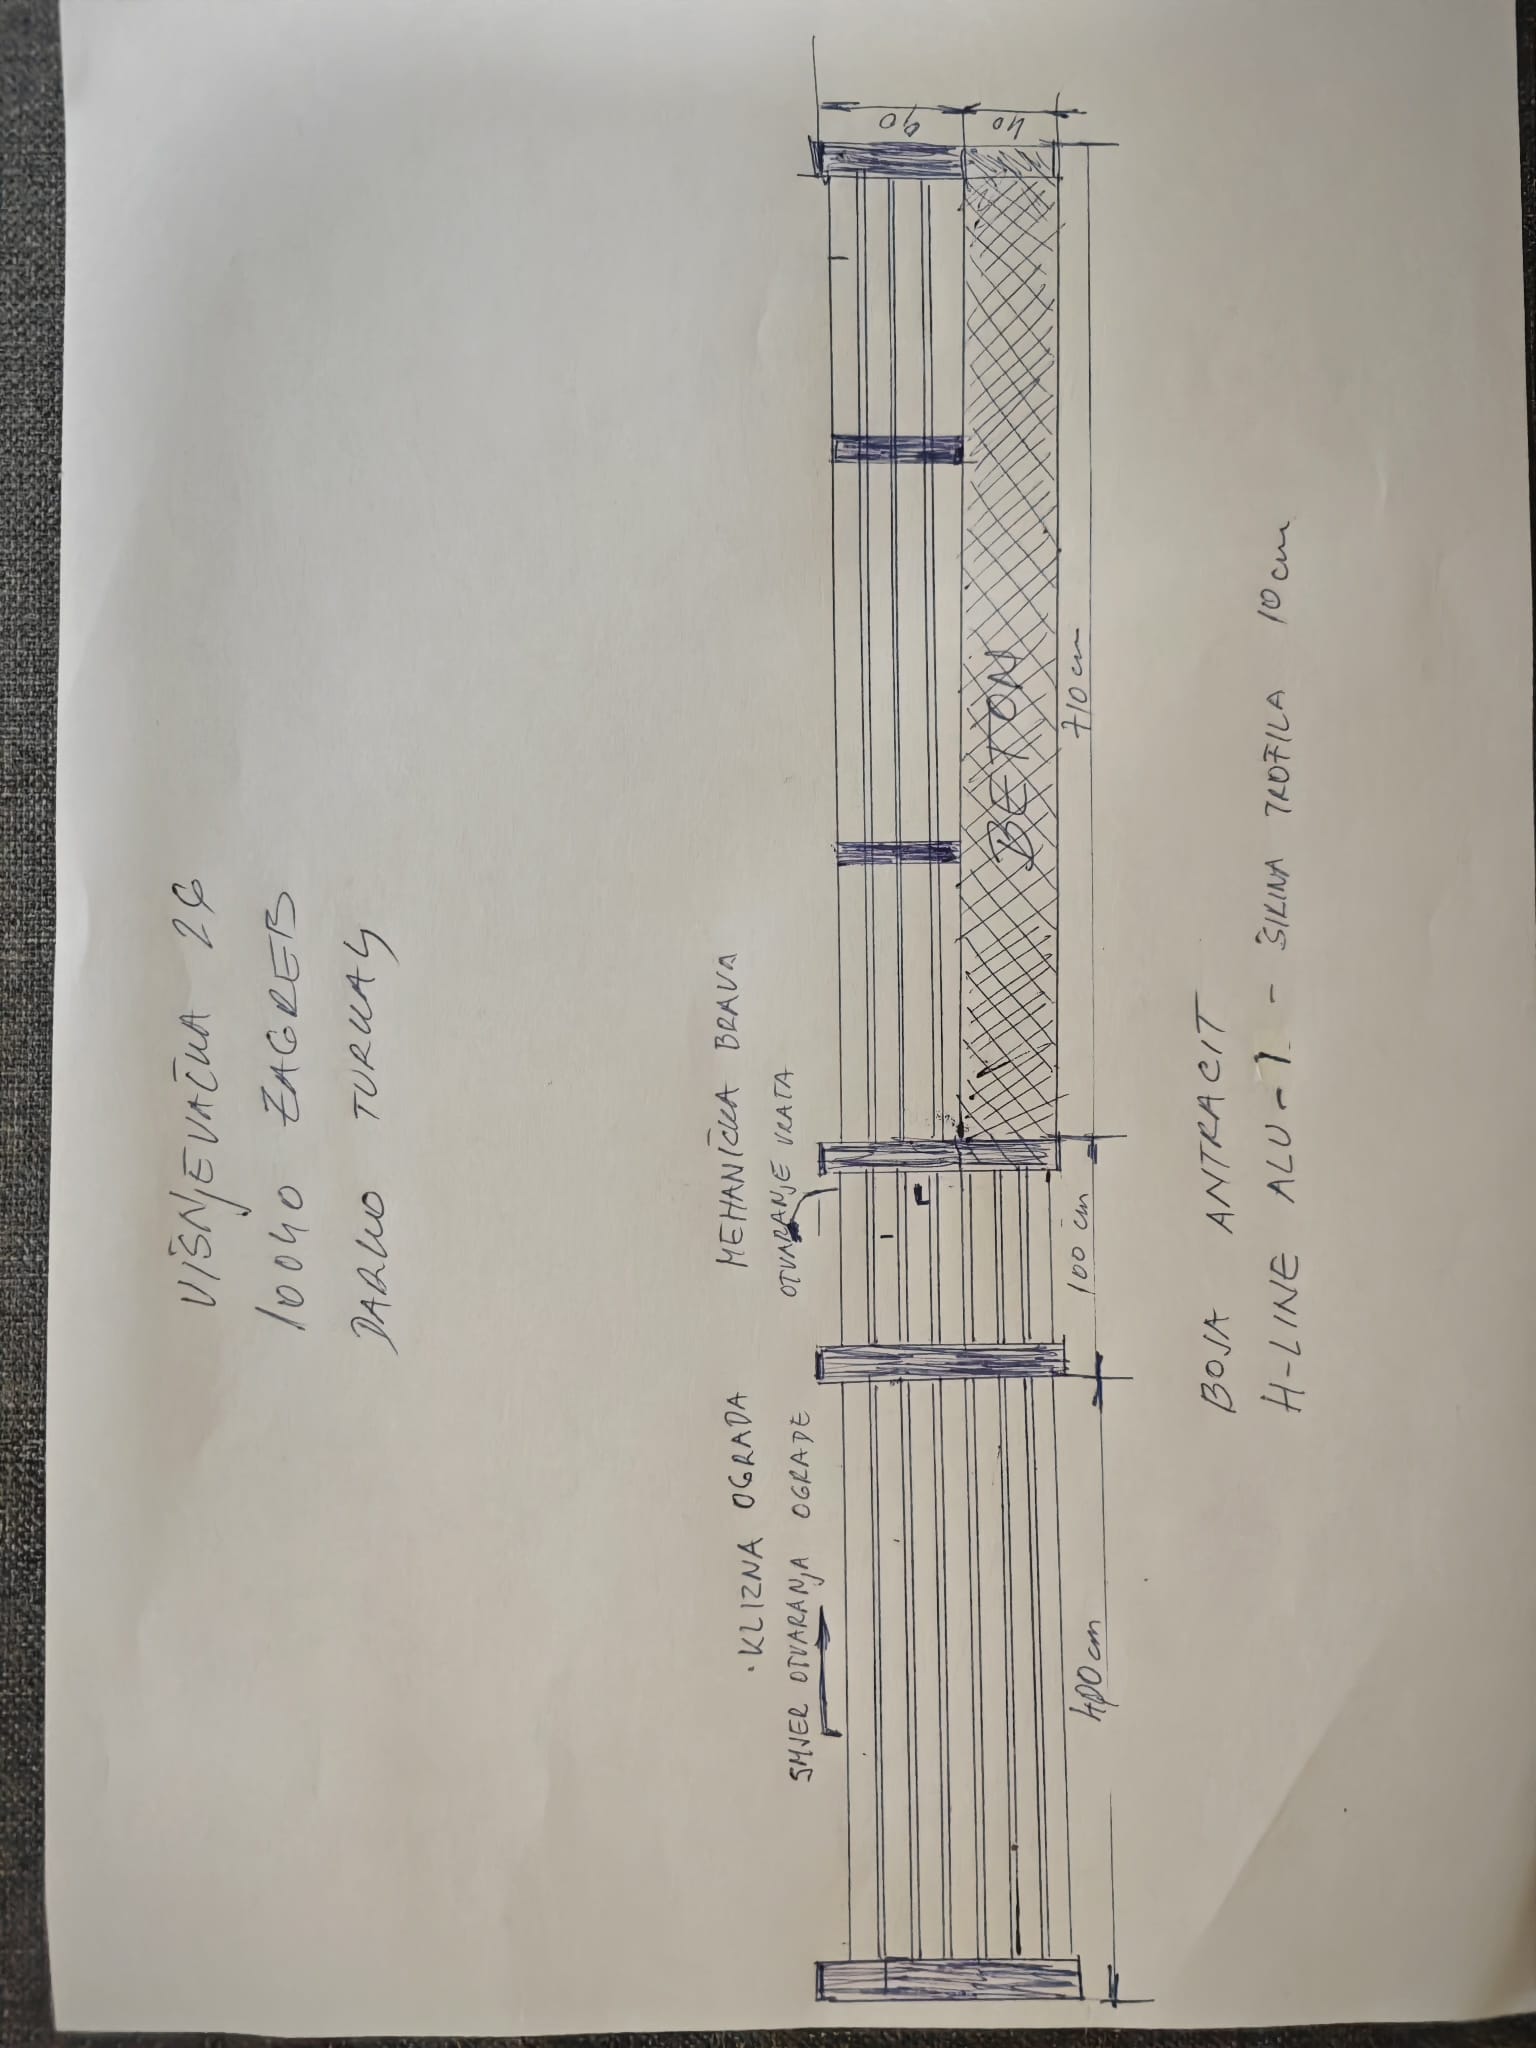 VIŠNJEVAČKA 26
10040 ZAGREB
DARKO TURKALJ
KLIZNA OGRADA
SMJER OTVARANJA OGRADE
MEHANIČKA BRAVA
OTVARANJE VRATA
90
40
BETON
400 cm
100 cm
710 cm
BOJA ANTRACIT
H-LINE ALU-1 - ŠIRINA PROFILA 10 cm